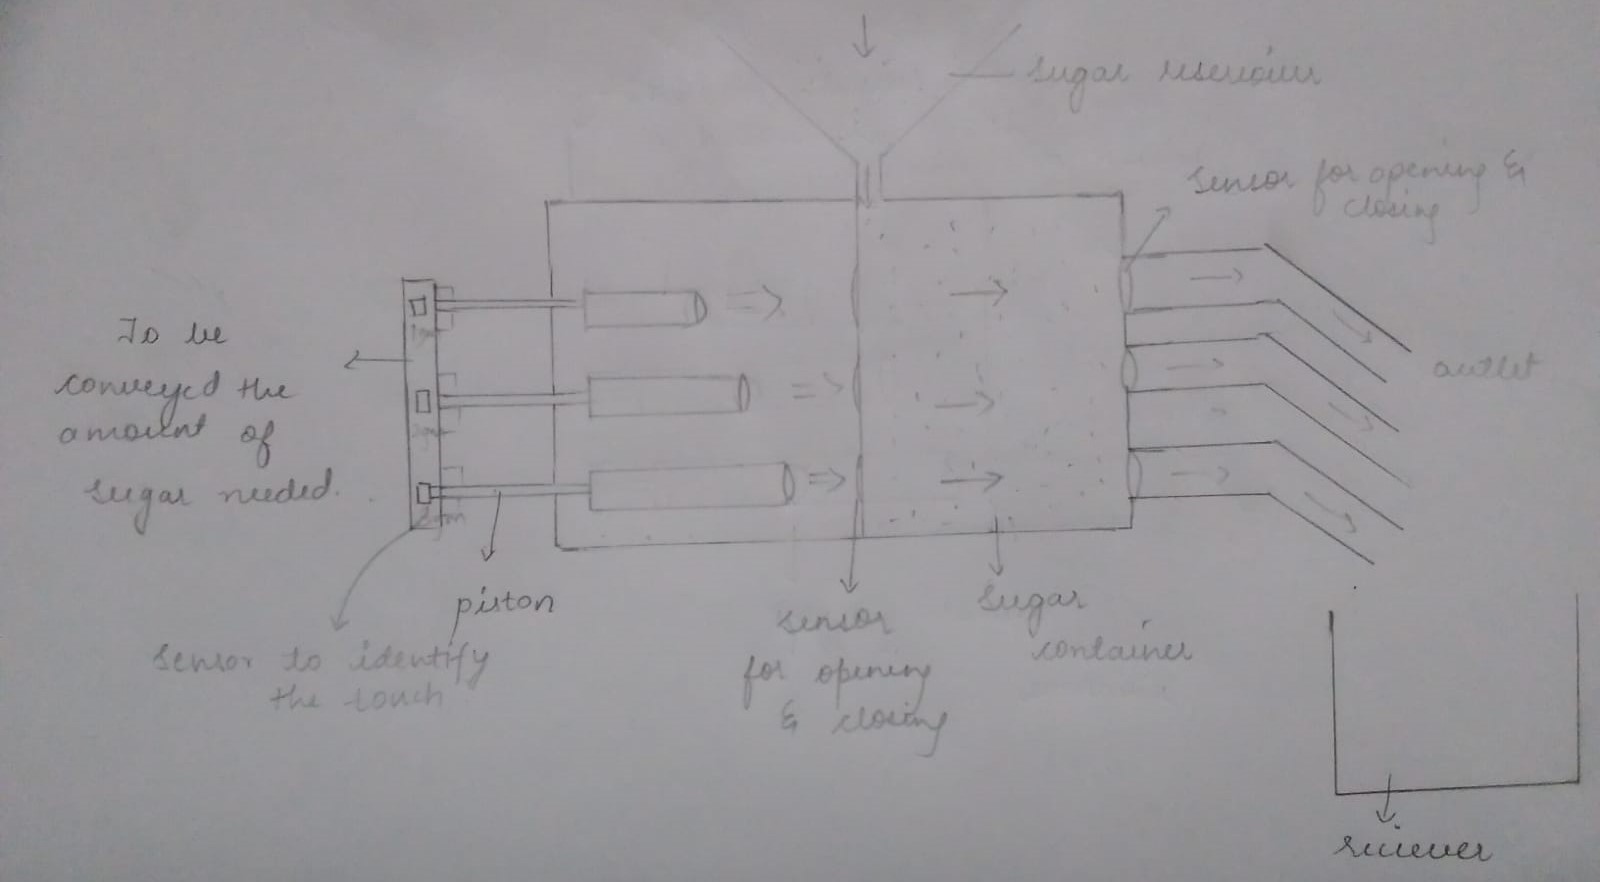 sugar reservoir
sensor for opening &
closing
outlet
To be
conveyed the
amount of
sugar needed.
piston
sensor to identify
the touch
sensor
for opening
& closing
sugar
container
reciever